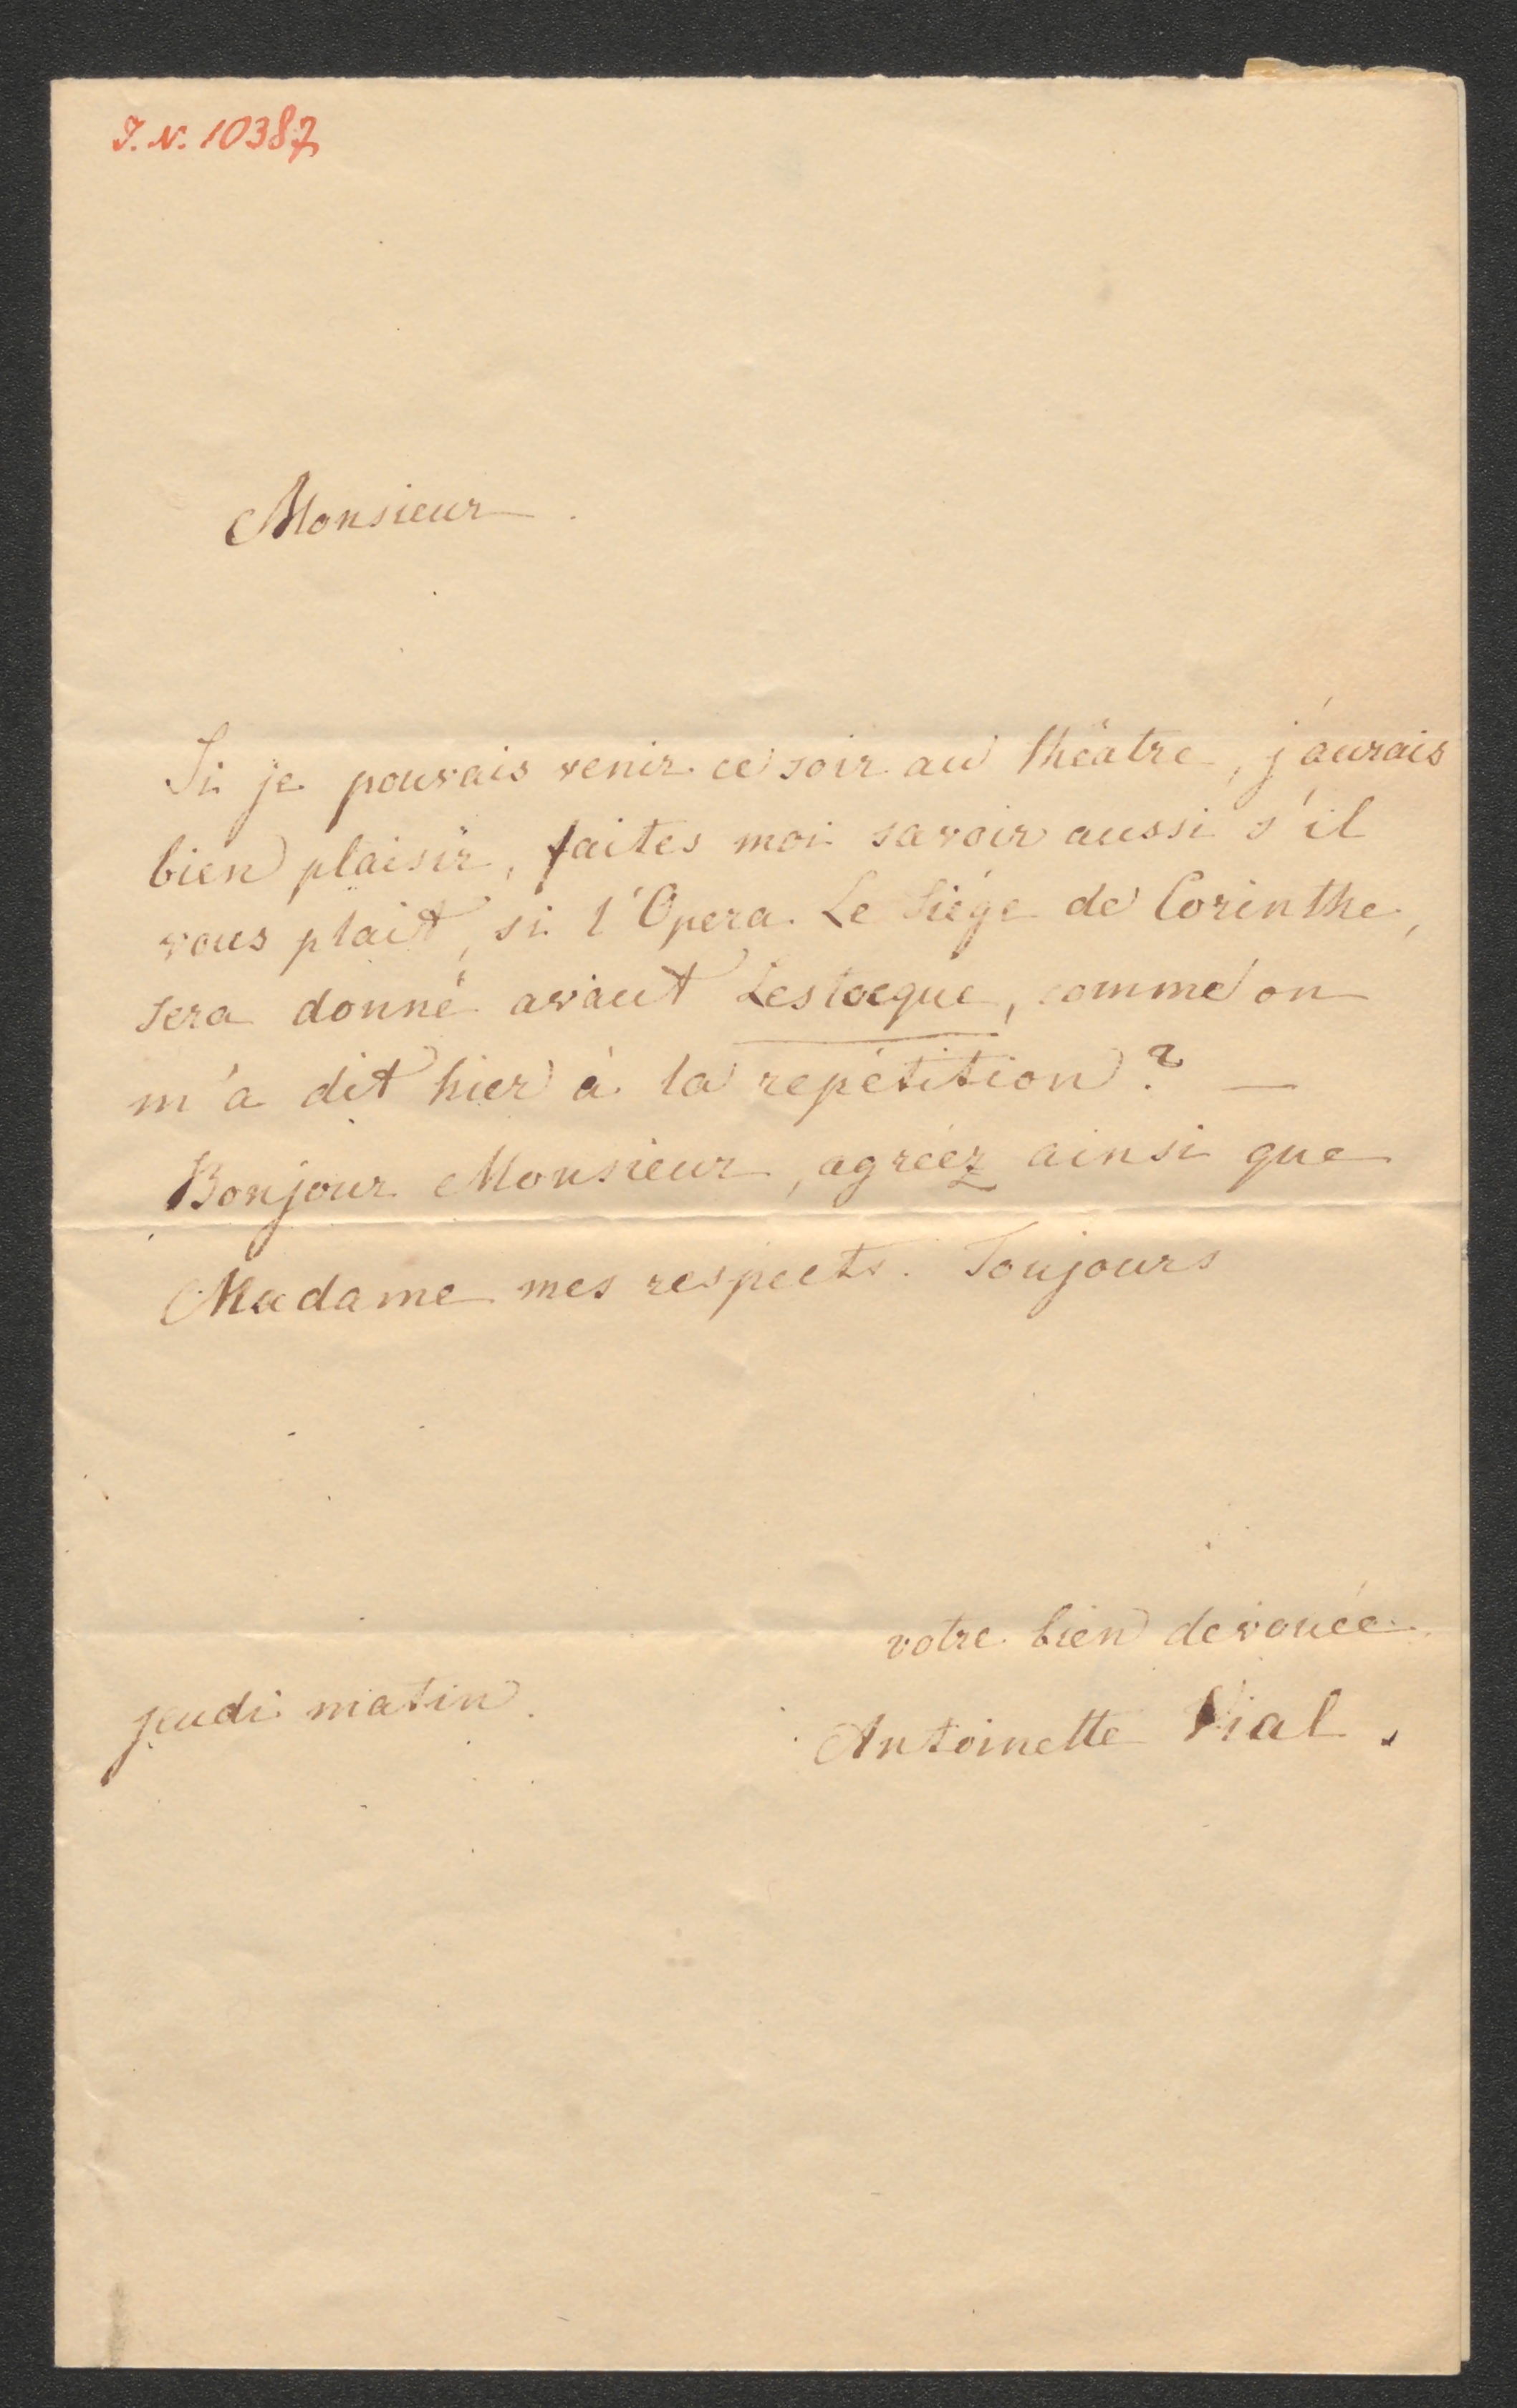 I. N. 10387
Monsieur.
Si je pouvais venir ce soir au théatre, j'aurais
bien plaisir, faites moi savoir aussi s'il
vous plait, si l'Opera Le Siége de Corinthe,
sera donné avant Lestocque, comme on
m'a dit hier à la repétition? —
Bonjour Monsieur, agréez ainsi que
Madame mes respects. Toujours
votre bien devouée
jeudi matin.
Antoinette Vial.